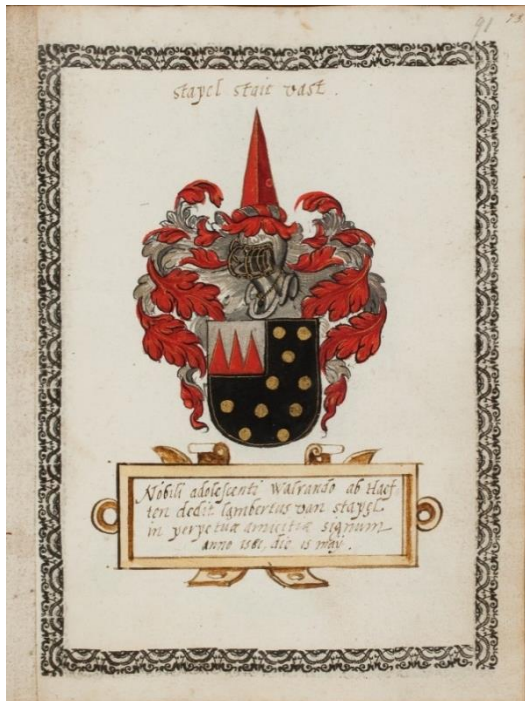 91 73.
stapel stait vast.
Nobili adolescenti Walrando ab Haef,
ten dedit lambertus van stapel
in perpetuæ amicitiæ signum
anno 1581, die 15 may.